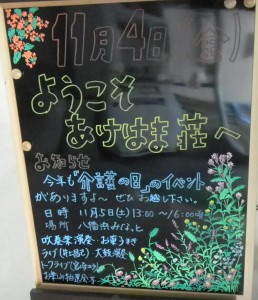 11月4日(金)
ようこそ
あけはま荘へ
お知らせ
今年も「介護の日」のイベント
がありますよ〜 ぜひお越し下さい。
日時 11月5日(土)13:00〜16:00
場所 八幡浜みなっと
吹奏楽演奏・お菓子まき
ライブ
トークライブ
お楽しみ抽選会 等